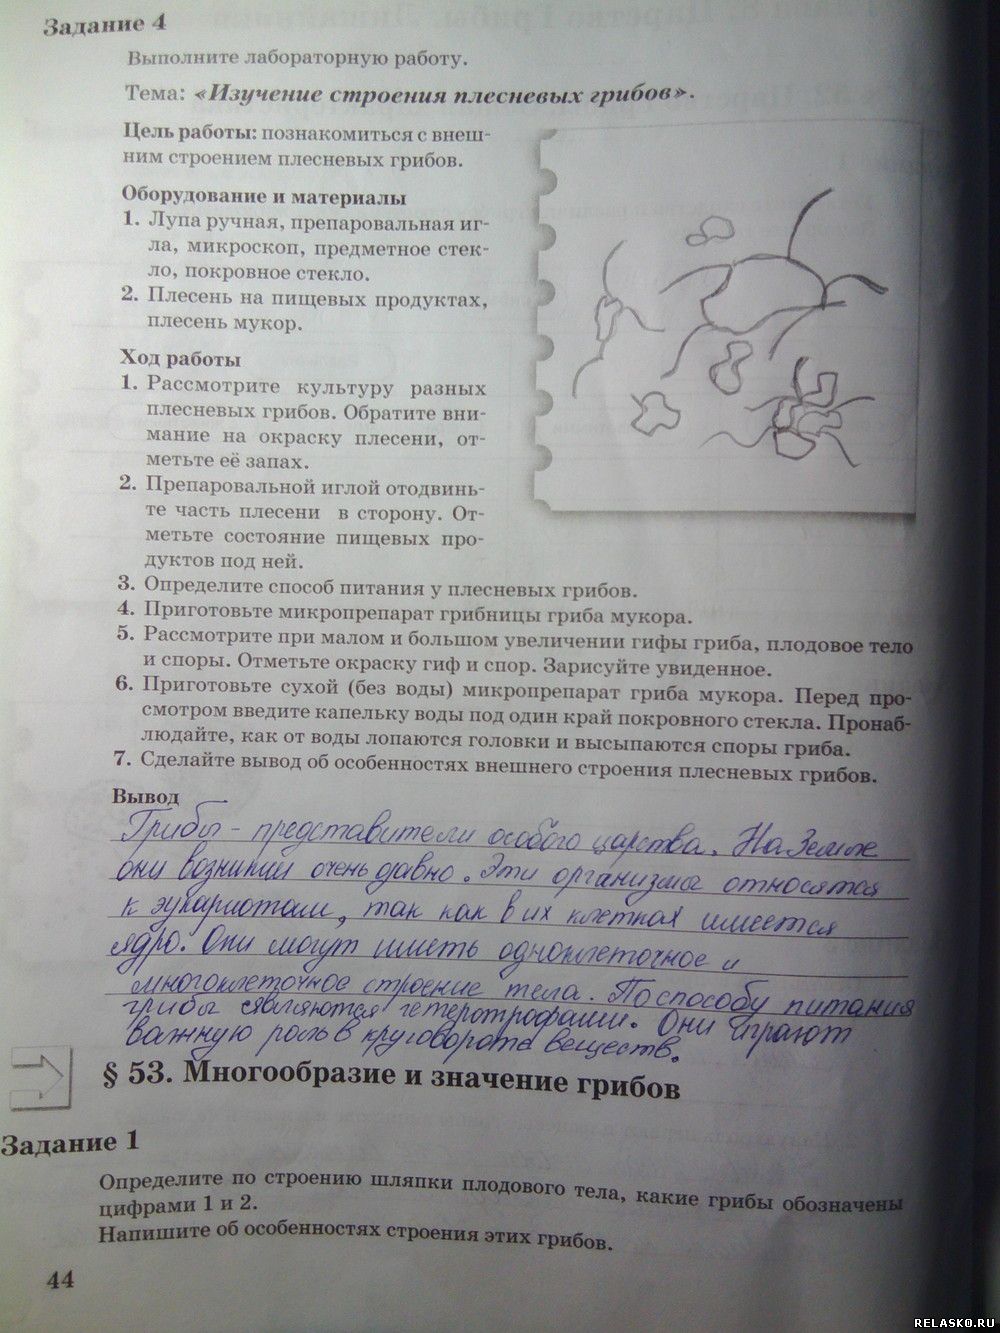 Задание 4
Выполните лабораторную работу.
Тема: «Изучение строения плесневых грибов».
Цель работы: познакомиться с внеш-
ним строением плесневых грибов.
Оборудование и материалы
1. Лупа ручная, препаровальная иг-
ла, микроскоп, предметное стек-
ло, покровное стекло.
2. Плесень на пищевых продуктах,
плесень мукор.
Ход работы
1. Рассмотрите культуру разных
плесневых грибов. Обратите вни-
мание на окраску плесени, от-
метьте её запах.
2. Препаровальной иглой отодвинь-
те часть плесени в сторону. От-
метьте состояние пищевых про-
дуктов под ней.
3. Определите способ питания у плесневых грибов.
4. Приготовьте микропрепарат грибницы гриба мукора.
5. Рассмотрите при малом и большом увеличении гифы гриба, плодовое тело
и споры. Отметьте окраску гиф и спор. Зарисуйте увиденное.
6. Приготовьте сухой (без воды) микропрепарат гриба мукора. Перед про-
смотром введите капельку воды под один край покровного стекла. Пронаб-
людайте, как от воды лопаются головки и высыпаются споры гриба.
7. Сделайте вывод об особенностях внешнего строения плесневых грибов.
Вывод
Грибы - представители особого царства. На Земле
они возникли очень давно. Эти организмы относятся
к эукариотам, так как в их клетках имеется
ядро. Они могут иметь одноклеточное и
многоклеточное строение тела. По способу питания
грибы являются гетеротрофами. Они играют
важную роль в круговороте веществ.
§ 53. Многообразие и значение грибов
Задание 1
Определите по строению шляпки плодового тела, какие грибы обозначены
цифрами 1 и 2.
Напишите об особенностях строения этих грибов.
44
RELASKO.RU